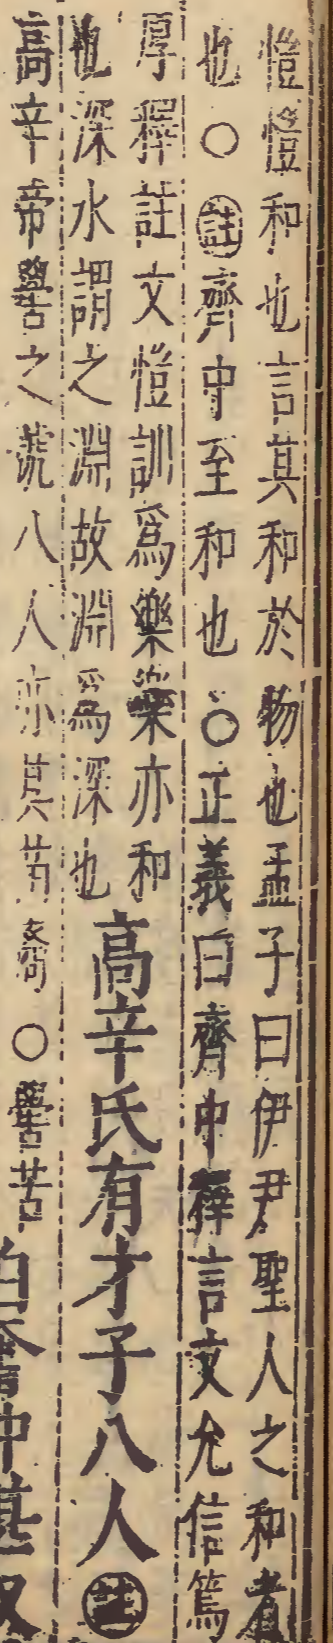 愷愷和也言其和於物也孟子曰伊尹聖人之和者
也○註齊中至和也○正義曰齊中釋言文允信篤
厚釋註文愷訓爲樂樂亦和
也深水謂之淵故淵爲深也
高辛氏有才子八人註
高辛帝嚳之號八人亦其苗裔○嚳苦
伯奮仲堪叔